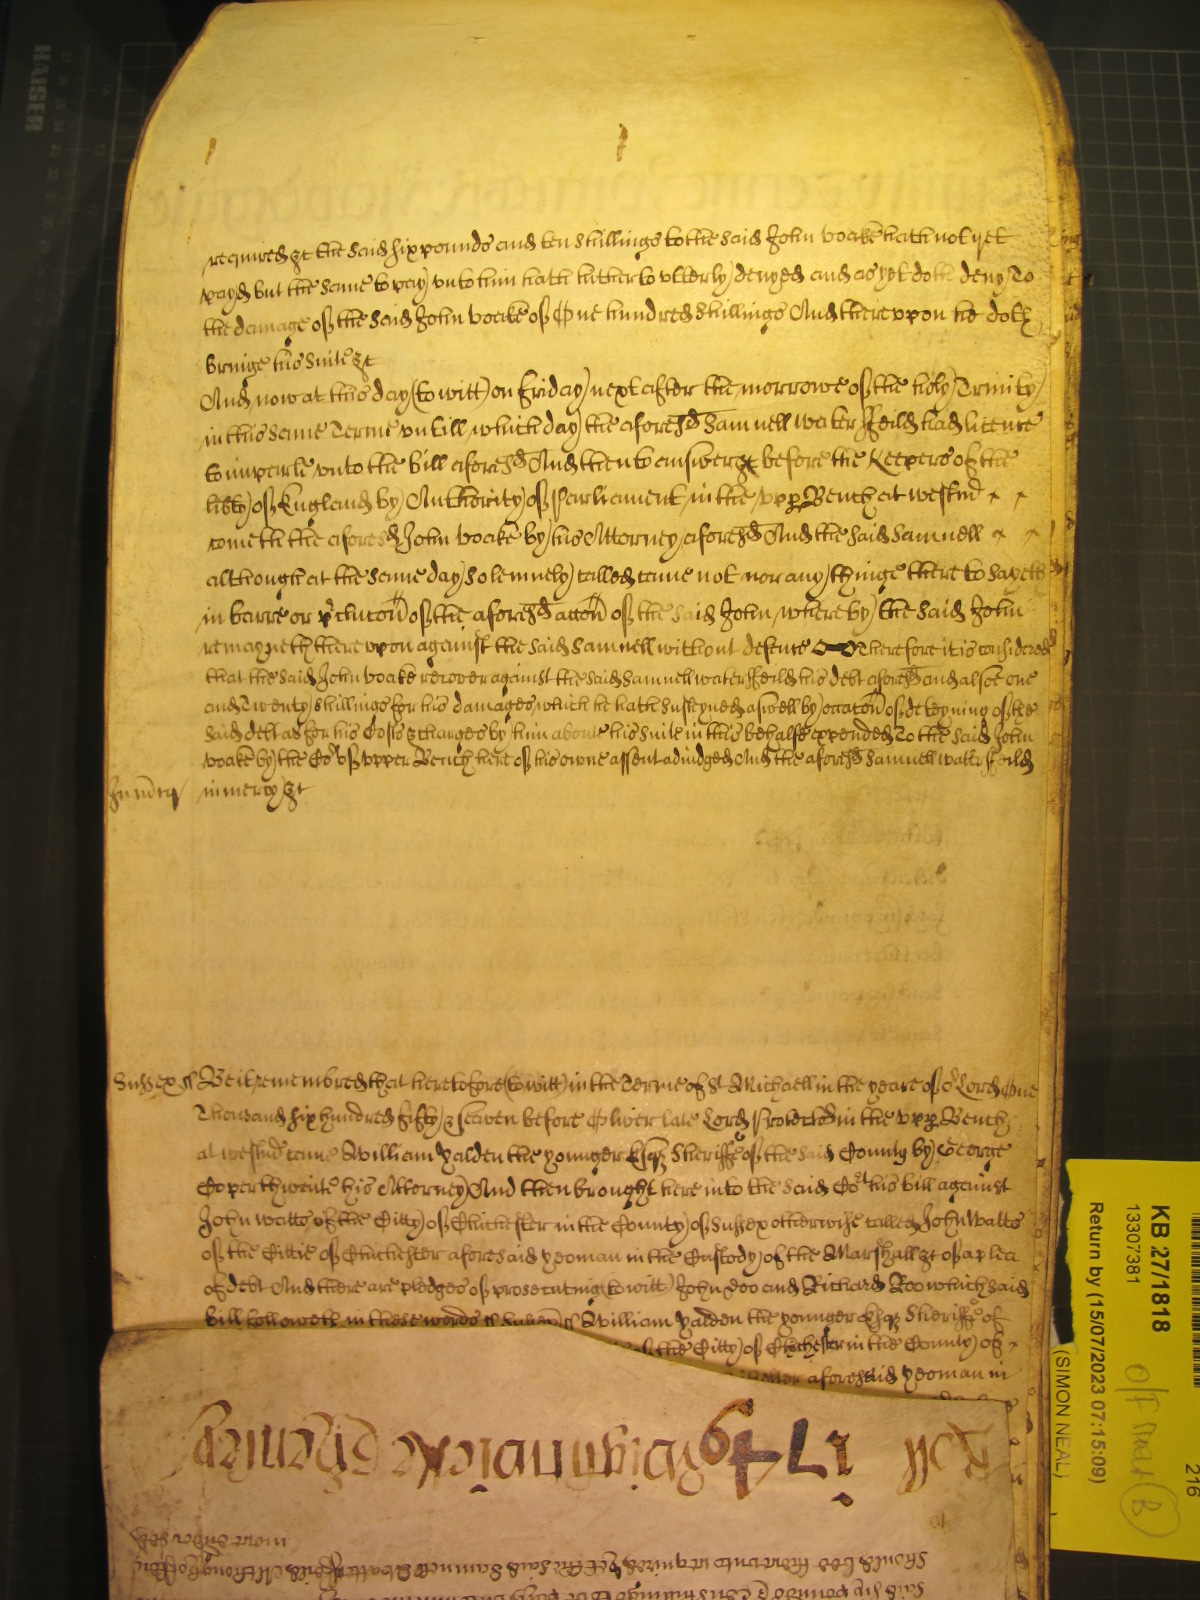 required &c the said six pounds and ten shillings to the said John Voake hath not yet
payd but the same to pay unto him hath hitherto utterly denyed and as yet doth deny To
the damage of the said John Voake of One hundred shillings And thereupon he doth
bringe his suite &c
And now at this day (to witt) on Friday next after the morrowe of the holy Trinity
in this same Terme untill which day the aforesd Samuell Waterffeild had licence
to imparle unto the bill aforesd And then to answer &c before the Keepers of the
libty of England by Authority of Parliament in the upp Bench at Westmr
cometh the aforesd John Voake by his Attorney aforesd And the said Samuell
although at the same day solemnely called came not nor any thinge there to sayeth
in barre or preclucon of the aforesd accon of the said John whereby the said John
remayneth thereupon against the said Samuell without defence Therefore it is considered
that the said John Voake recover against the said Samuell Waterffeild his debt aforesd and alsoe one
and Twenty shillings for his damages which he hath susteyned aswell by occacon of deteyning of the
said debt as for his Costs & charges by him about his suite in this behalfe expended To the said John
Voake by the Cort of upper Bench here of his owne assent adiudged And the aforesd Samuell Waterffeild
in mercy &c
Sussex ss Be it remembred that heretofore (to witt) in the Terme of St Michaell in the yeare of or Lord One
Thousand six hundred fifty & seaven before Oliver late Lord Protector in the upp Bench
at Westmr came William Yalden the younger Esqr Sheriffe of the said County by George
Coperthwaite his Attorney And then brought here into the said Cort his bill against
John Watts of the Citty of Chichester in the County of Sussex otherwise called John Watts
of the Cittie of Chichester aforesaid yeoman in the Custody of the Marshall &c of a plea
of debt And there are pledges of prosecuting (to witt) John Doo and Richard Roo which said
bill followeth in these words ss Sussex ss William Yalden the younger Esqr Sheriffe of
of the Citty of Chichester in the County of
aforesaid yeoman in
Roll 179
KB 27/1818
13307381
Return by (15/07/2023 07:15:09)
(SIMON NEAL)
216
KAISER